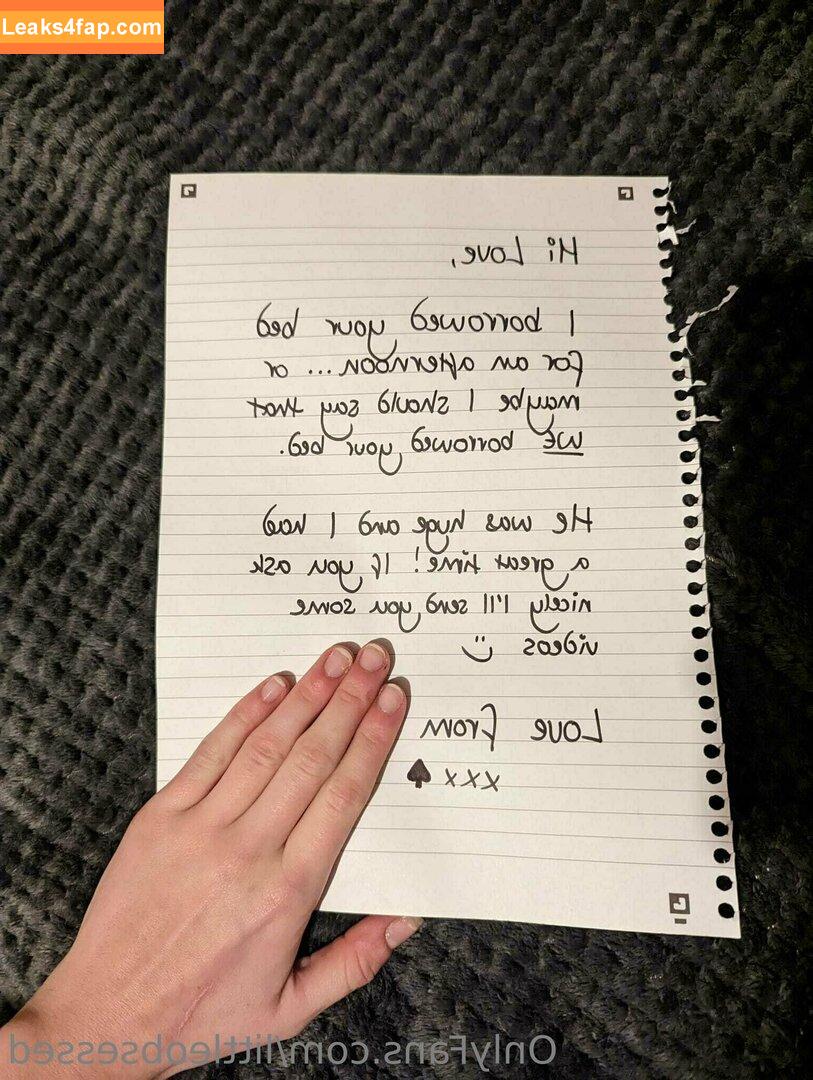 Leaks4fap.com
Hi Love,
I borrowed your bed
for an afternoon ... or
maybe I should say that
we borrowed your bed.
He was huge and I had
a great time! If you ask
nicely I'll send you some
videos
Love from
xxx
OnlyFans.com/littleobsessed